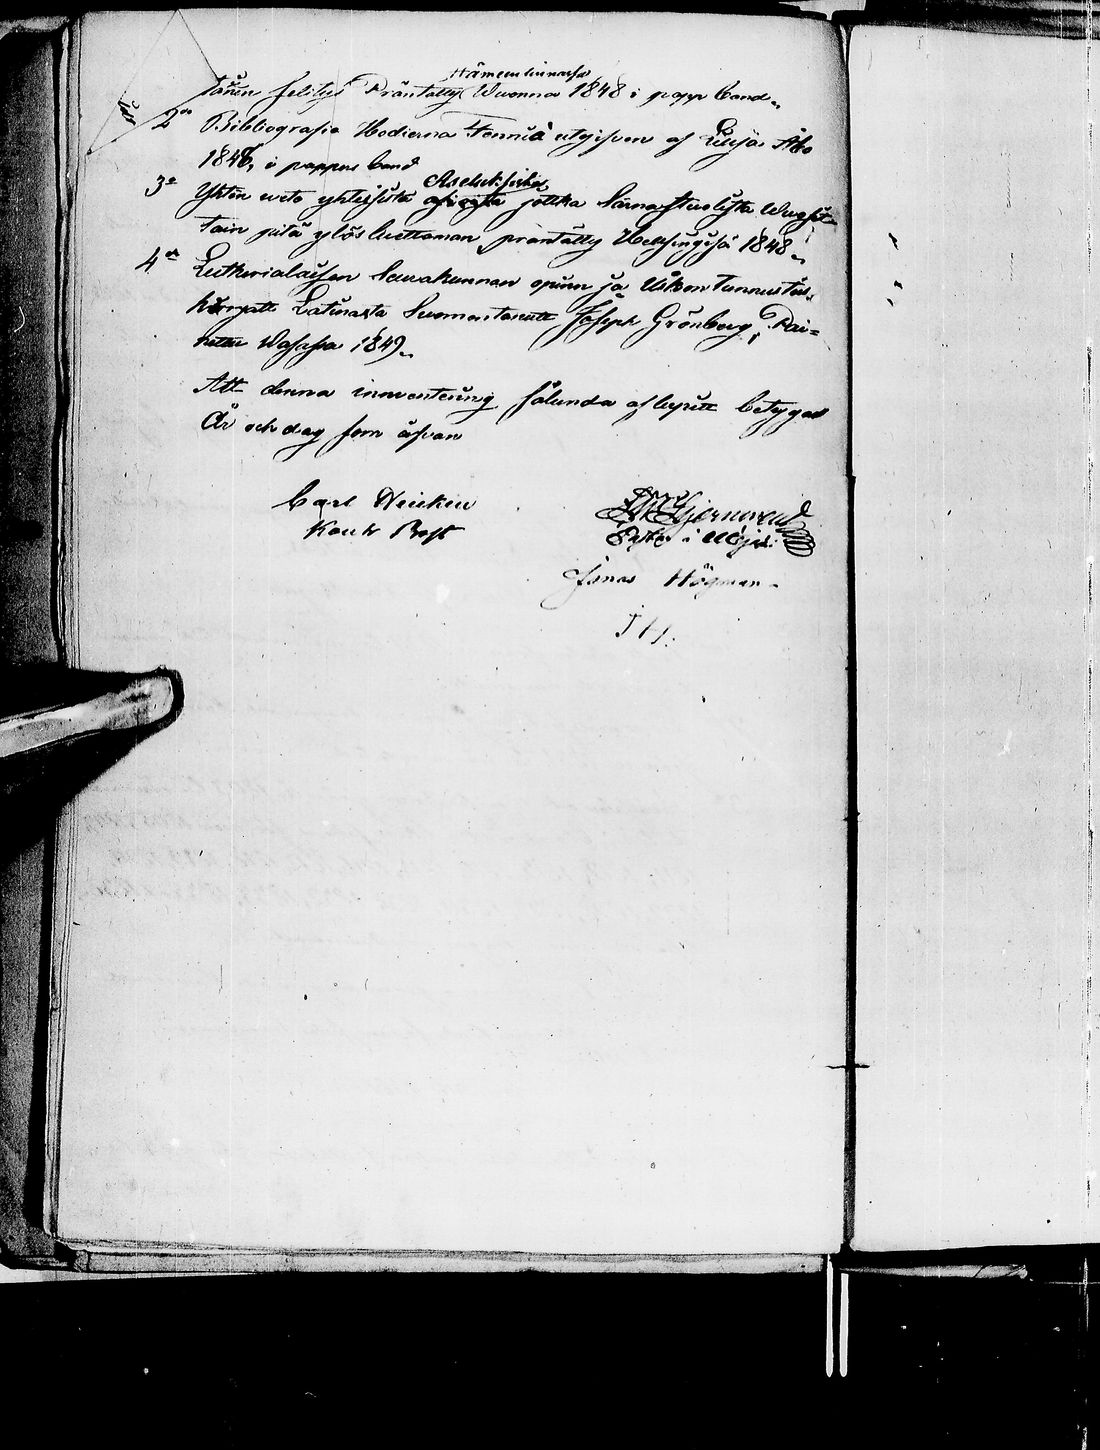 Hämeenlinnassa
tärien selitys Präntätty Wuonna 1848 i papp band
2o Bibliografia Hodierna Fennia utgifven af Lilija Åbo
1848, i pappers band
Asetuksista
3o Yhten weto yhteisistä jotka Saarnastuolista
Tain pitä ylösluettaman präntätty Helsingisä 1848
4o Lutherialaisen Seurakunnan opinn ja Uskon Tunnustus
kirjat Latinasta Suomentanut Joseph Grönberg, Pai=
nettu Wasassa 1849
Att denna inwentering sålunda aflupitt betygas
År och dag som åfvan
Carl Heikku
Kauk Rost
Pastor i
Jonas Högman
J H.